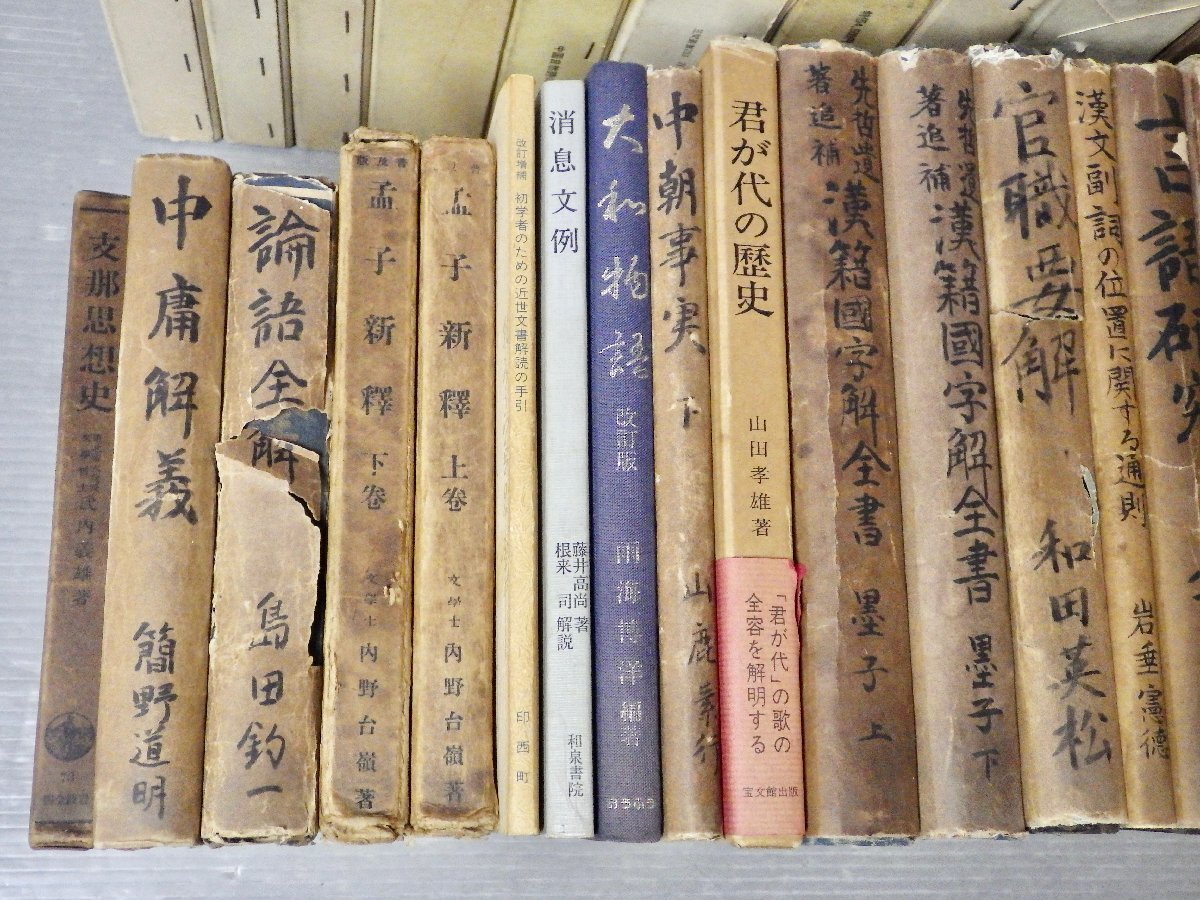 支那思想史
武内義雄著
中庸解義
簡野道明
論語全解
島田釣一
孟子新釋
下卷
文學士
内野台嶺著
孟子新釋
上卷
文學士
内野台嶺著
改訂増補
初学者のための近世文書解読の手引
印西町
消息文例
藤井高尚 著
根来 司 解説
和泉書院
大和物語
改訂版
雨海博洋編著
おうふう
中朝事実 下
山鹿素行
君が代の歴史
山田孝雄著
「君が代」の歌の
全容を解明する
宝文館出版
先哲遺
著追補
漢籍國字解全書
墨子 上
先哲遺
著追補
漢籍國字解全書
墨子 下
官職要解
和田英松
漢文副詞の位置に関する通則
岩垂憲德
言語研究